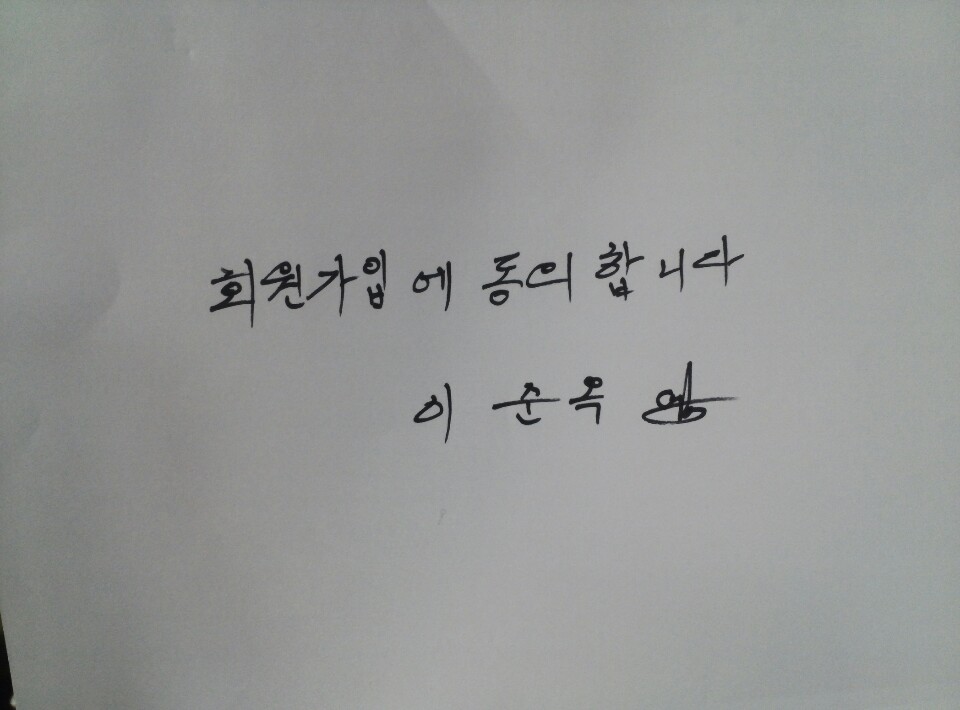 회원가입에 동의합니다
이 준옥